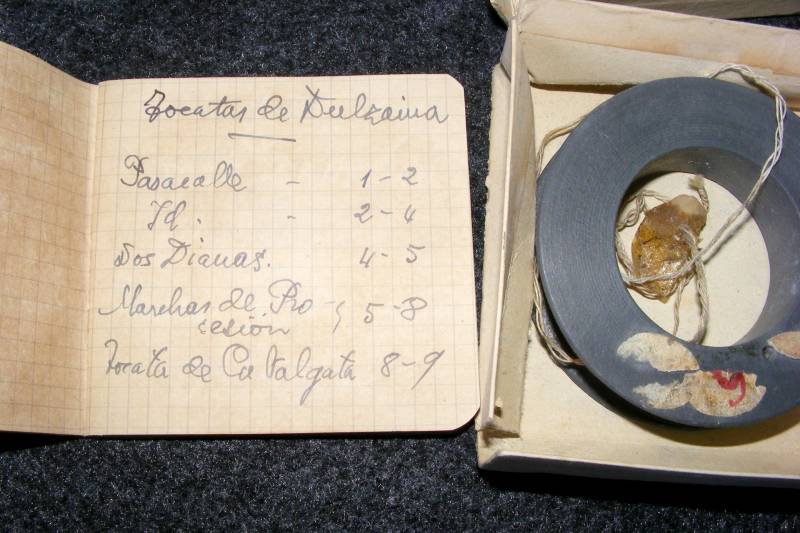 Tocatas de Dulzaina
Pasacalle - 1-2
Id. - 2-4
Dos Dianas. 4-5
Marchas de Pro-
cesión 5-8
Tocata de Cabalgata 8-9